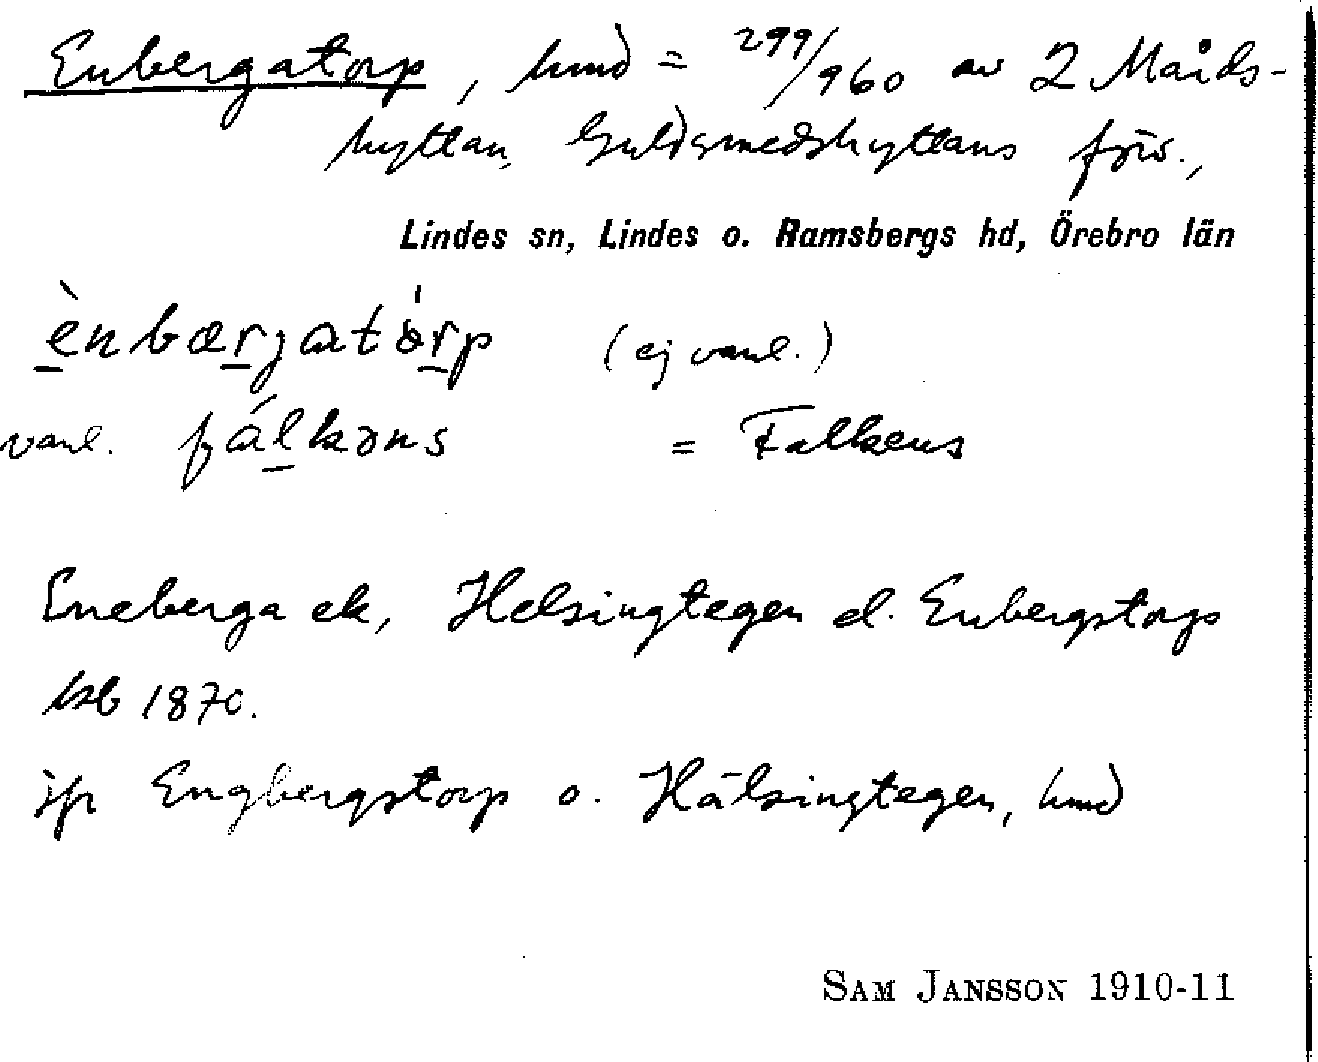 Enbergatorp, hmd = 299/960 av 2 Mårds-
hyttan, Guldsmedshyttans förs.,
Lindes sn, Lindes o. Ramsbergs hd, Örebro län
ènbærjatórp (ej vanl.)
vanl. fálkəns = Falkens
Eneberga ek, Helsingtegen el. Enbergstorp
hsb 1870.
jfr Engbergstorp o. Hälsingtegen, hmd
SAM JANSSON 1910-11